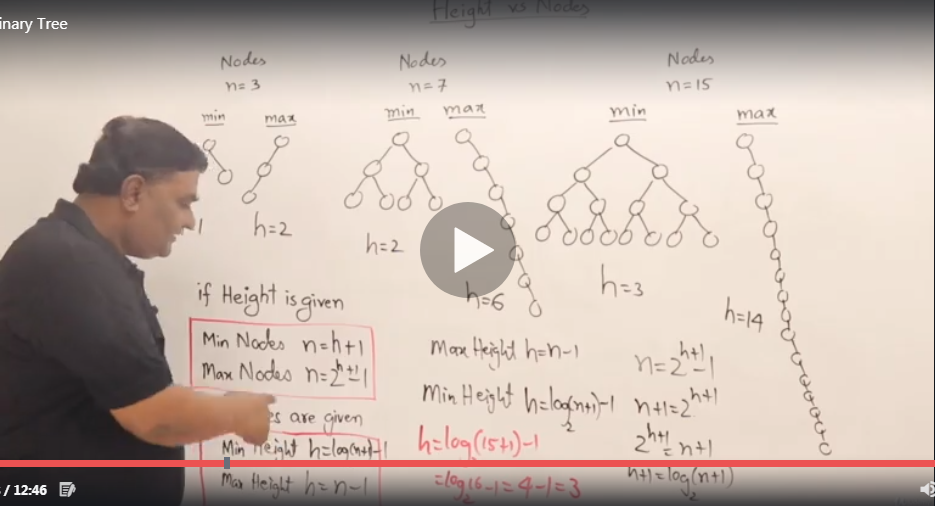 inary Tree
Height vs Nodes
Nodes
n=3
min
max
1
h=2
Nodes
n=7
min
max
h=2
h=6
Nodes
n=15
min
max
h=3
h=14
if Height is given
Min Nodes n=h+1
Max Nodes n=2^{h+1}-1
es are given
Min Height h=log(n+1)-1
Max Height h=n-1
Max Height h=n-1
Min Height h=log₂(n+1)-1
h=log(15+1)-1
=log₂16-1=4-1=3
n=2^{h+1}-1
n+1=2^{h+1}
2^{h+1}=n+1
h+1=log₂(n+1)
/ 12:46